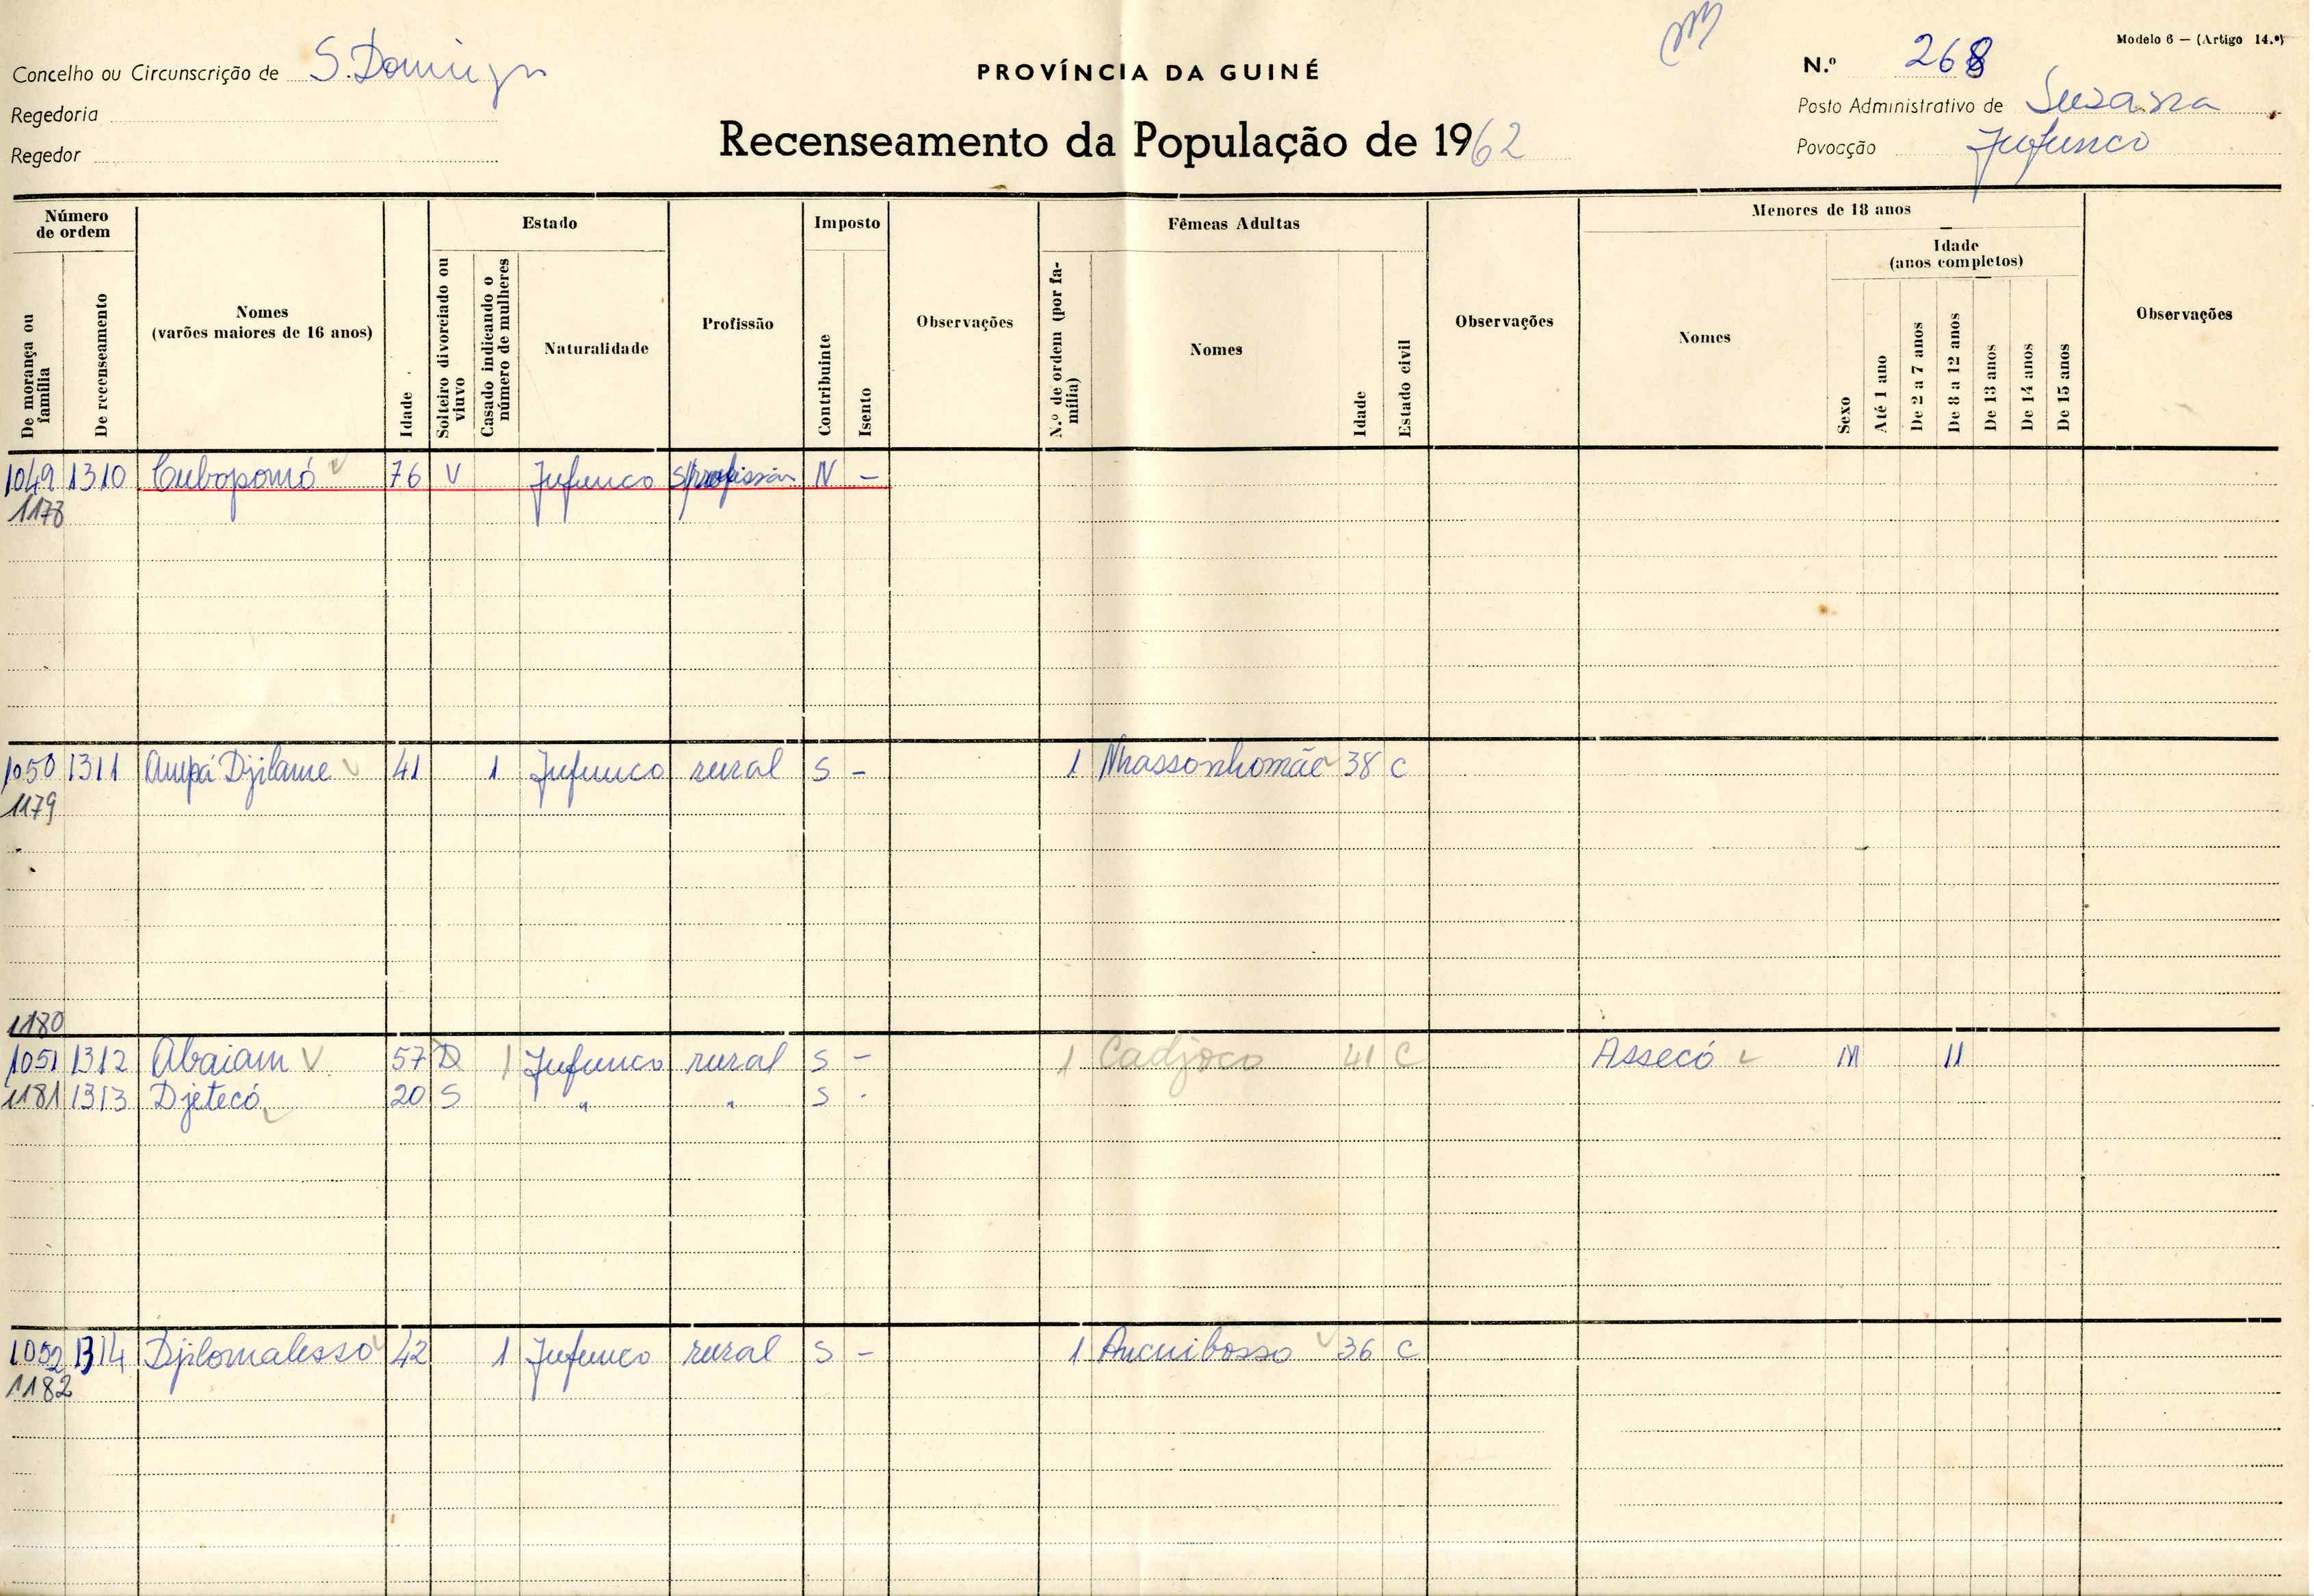 Modelo 6 — (Artigo 14.º)
Concelho ou Circunscrição de S. Domingos
PROVÍNCIA DA GUINÉ
N.º 268
Regedoria
Posto Administrativo de Suzana
Regedor
Recenseamento da População de 1962
Povoação Jufunco
Número de ordem
Estado
Imposto
Fêmeas Adultas
Menores de 18 anos
Idade (anos completos)
De morança ou família
De recenseamento
Nomes (varões maiores de 16 anos)
Idade
Solteiro divorciado ou viuvo
Casado indicando o número de mulheres
Naturalidade
Profissão
Contribuinte
Isento
Observações
N.º de ordem (por família)
Nomes
Idade
Estado civil
Observações
Nomes
Sexo
Até 1 ano
De 2 a 7 anos
De 8 a 12 anos
De 13 anos
De 14 anos
De 15 anos
Observações
1049 1310 Cubopomó 76 V Jufunco s/profissão N -
1178
1050 1311 Ampá Djilame 41 1 Jufunco rural S - 1 Nhassonhomãe 38 C
1179
1180
1051 1312 Abaiam 57 D 1 Jufunco rural S - 1 Cadjoco 41 C Assecó M 11
1181 1313 Djetecó 20 S " " S -
1052 1314 Djilomalesso 42 1 Jufunco rural S - 1 Ancuibosso 36 C
1182